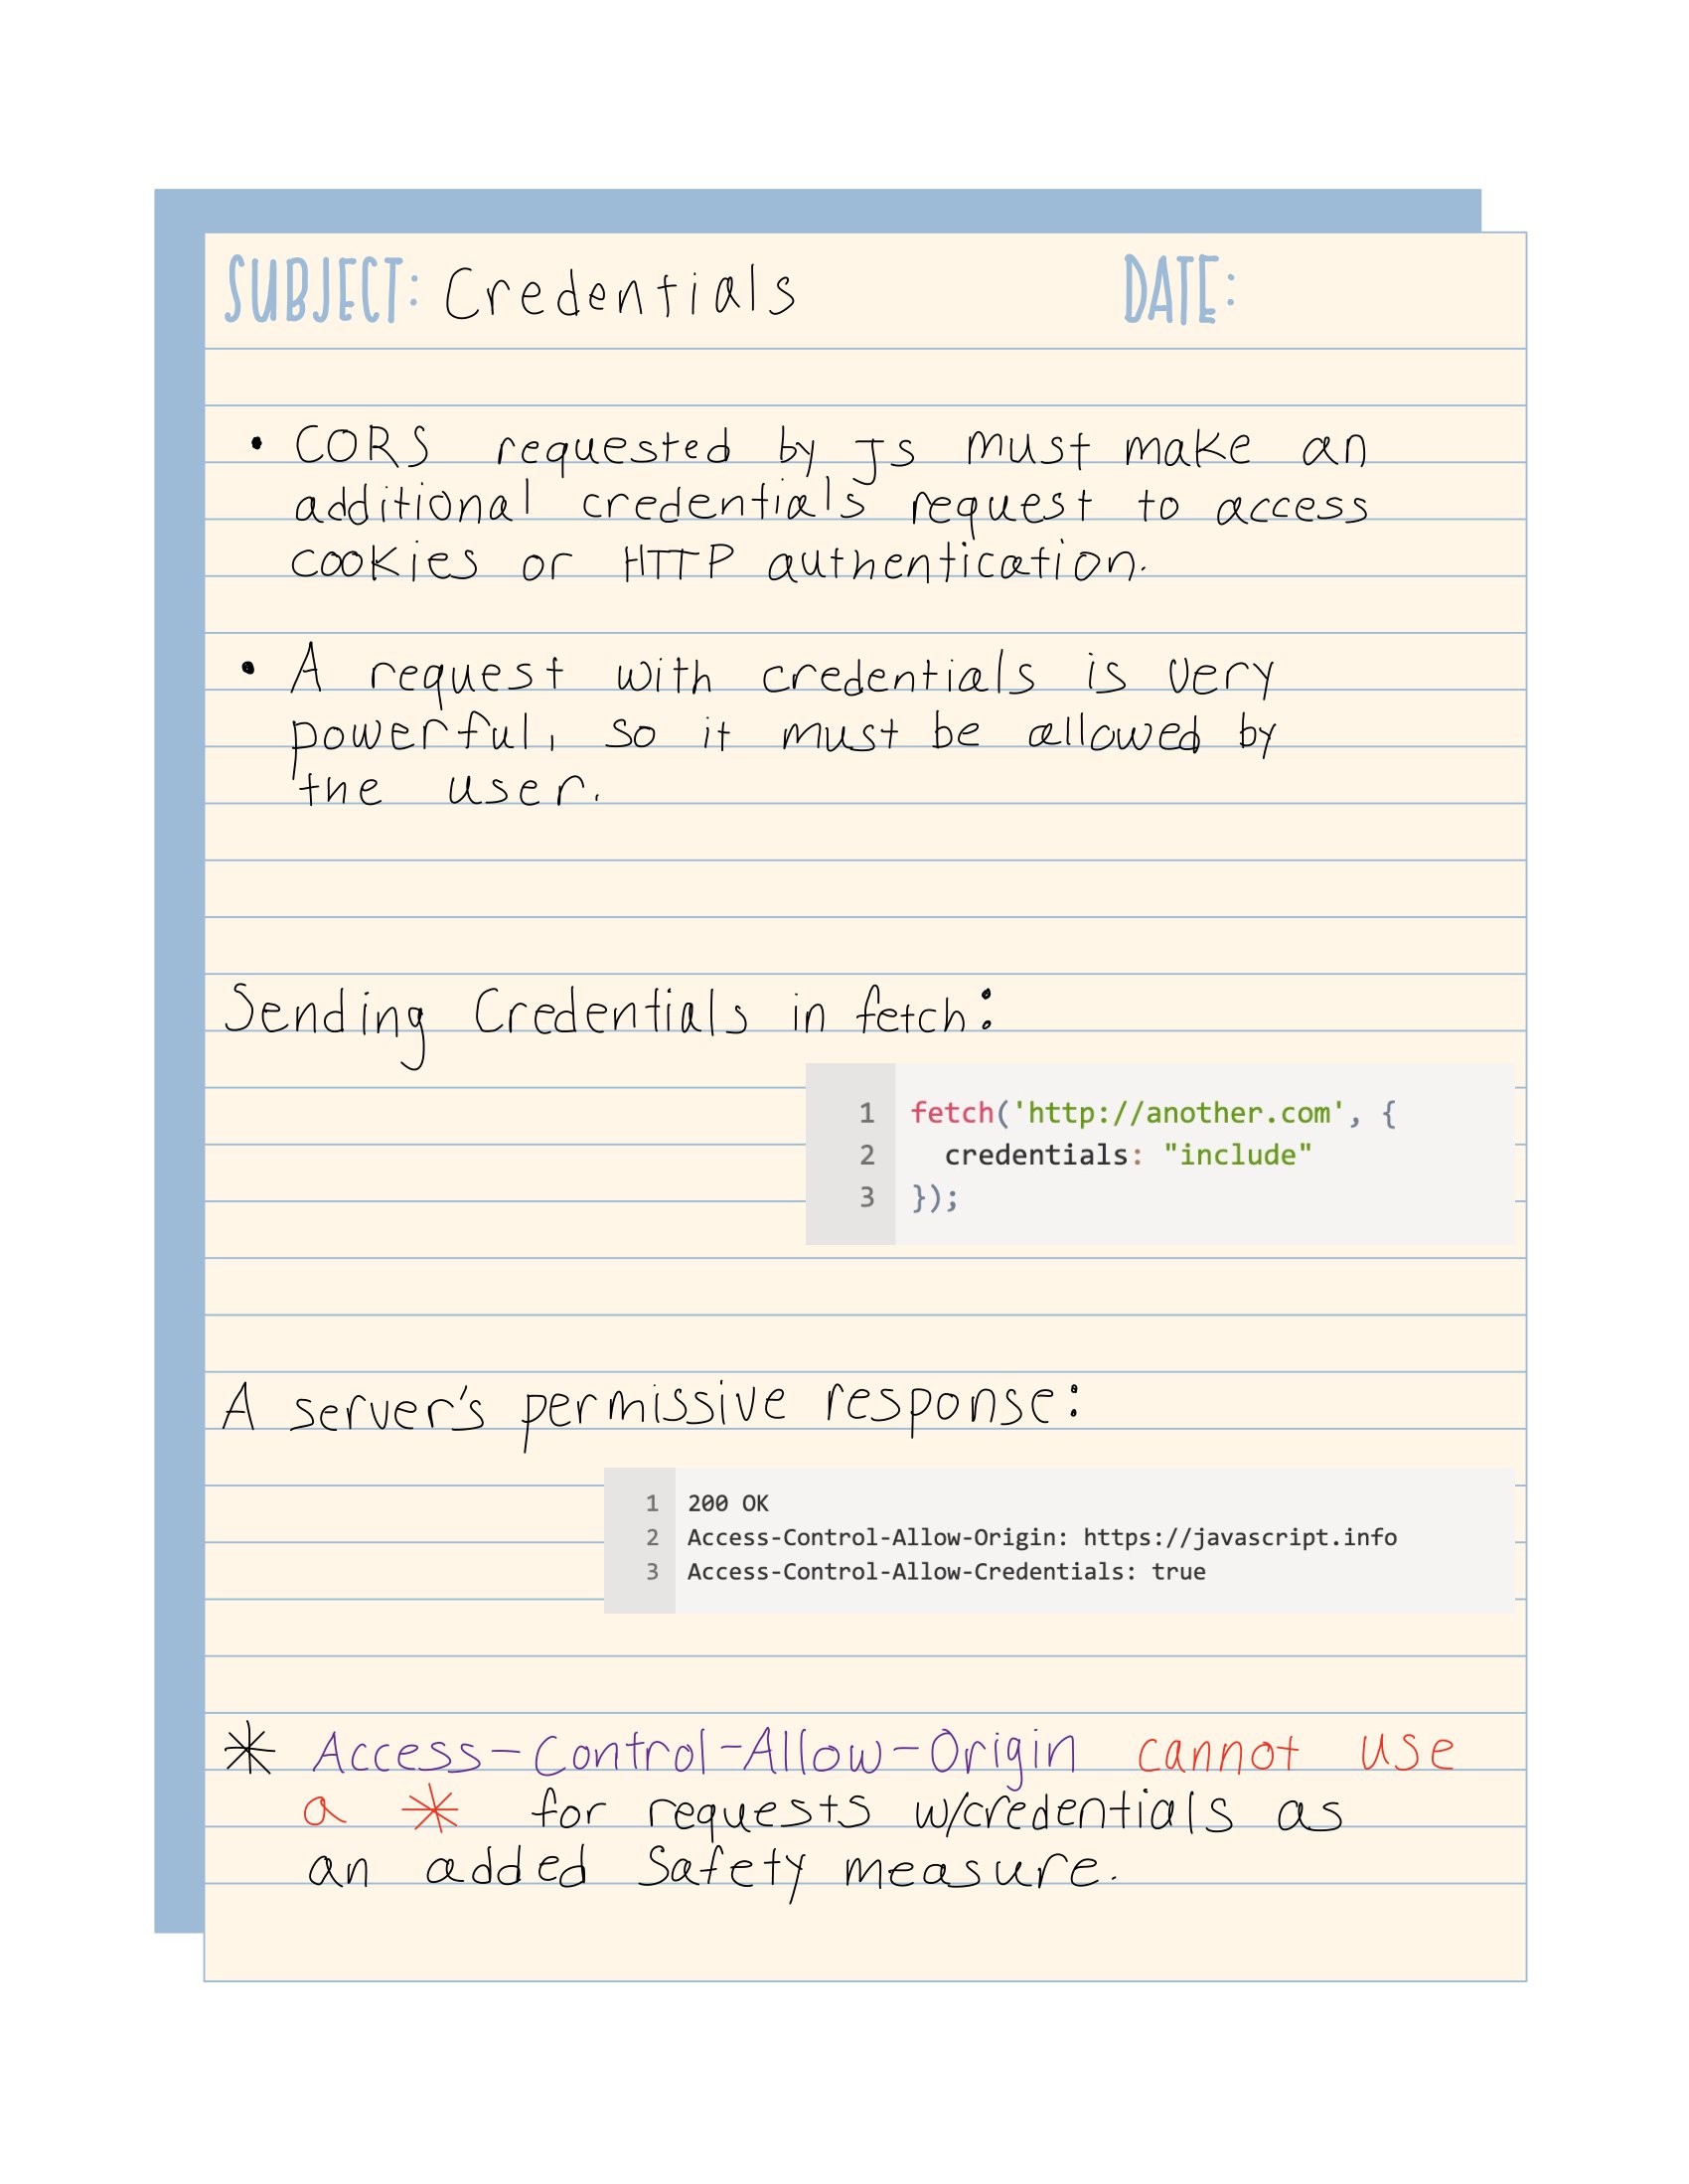 SUBJECT: Credentials DATE:
• CORS requested by JS must make an
additional credentials request to access
cookies or HTTP authentication.
• A request with credentials is very
powerful, so it must be allowed by
the user.
Sending Credentials in fetch:
1 fetch('http://another.com', {
2 credentials: "include"
3 });
A server's permissive response:
1 200 OK
2 Access-Control-Allow-Origin: https://javascript.info
3 Access-Control-Allow-Credentials: true
* Access-Control-Allow-Origin cannot use
a * for requests w/credentials as
an added Safety measure.